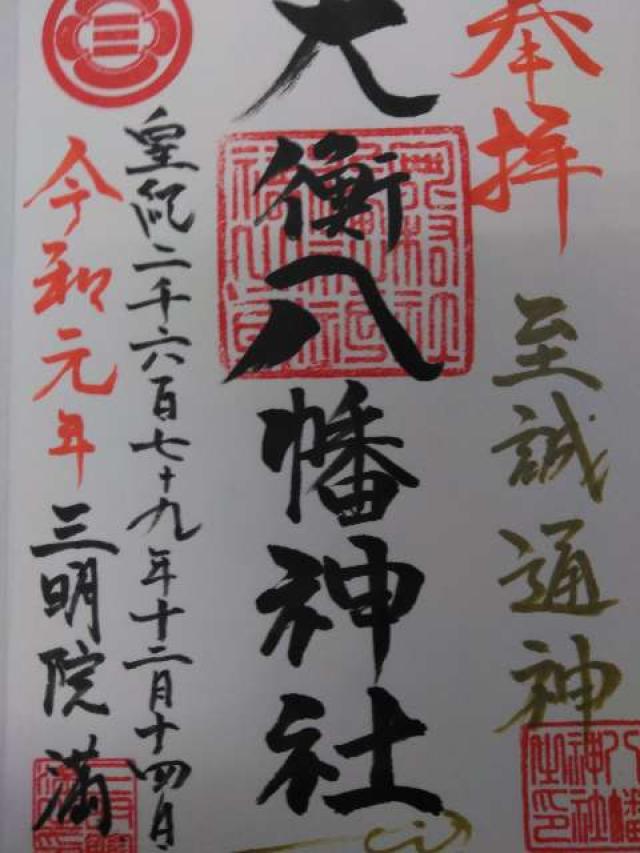 奉拝
至誠通神
大衡八幡神社
皇紀二千六百七十九年十二月十四日
令和元年三明院満